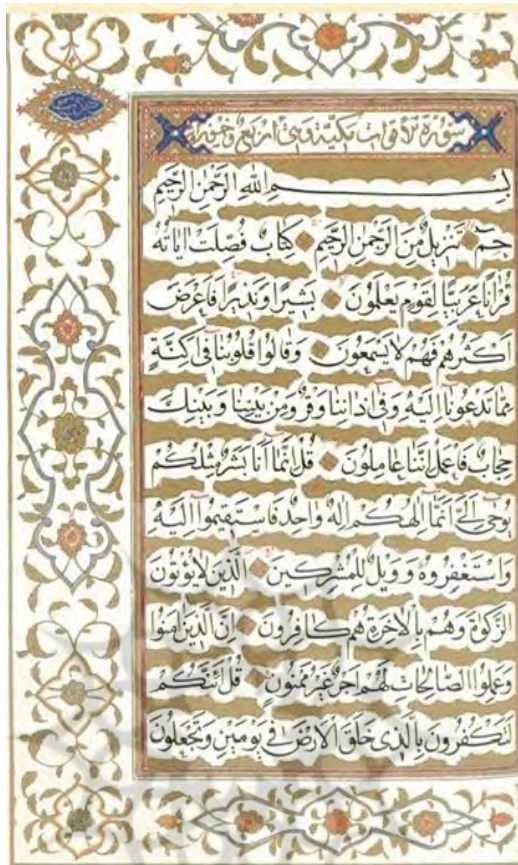 سورة الاقوات مكية وهى اربع وخمسون
بِسْمِ اللهِ الرَّحْمٰنِ الرَّحِيمِ
حٰمٓ تَنْزِيلٌ مِنَ الرَّحْمٰنِ الرَّحِيمِ كِتَابٌ فُصِّلَتْ اٰيَاتُهُ
قُرْاٰنًا عَرَبِيًّا لِقَوْمٍ يَعْلَمُونَ بَشِيرًا وَنَذِيرًا فَاَعْرَضَ
اَكْثَرُهُمْ فَهُمْ لَا يَسْمَعُونَ وَقَالُوا قُلُوبُنَا فِى اَكِنَّةٍ
مِمَّا تَدْعُونَا اِلَيْهِ وَفِى اٰذَانِنَا وَقْرٌ وَمِنْ بَيْنِنَا وَبَيْنِكَ
حِجَابٌ فَاعْمَلْ اِنَّنَا عَامِلُونَ قُلْ اِنَّمَا اَنَا بَشَرٌ مِثْلُكُمْ
يُوحٰى اِلَىَّ اَنَّمَا اِلٰهُكُمْ اِلٰهٌ وَاحِدٌ فَاسْتَقِيمُوا اِلَيْهِ
وَاسْتَغْفِرُوهُ وَوَيْلٌ لِلْمُشْرِكِينَ الَّذِينَ لَا يُؤْتُونَ
الزَّكٰوةَ وَهُمْ بِالْاٰخِرَةِ هُمْ كَافِرُونَ اِنَّ الَّذِينَ اٰمَنُوا
وَعَمِلُوا الصَّالِحَاتِ لَهُمْ اَجْرٌ غَيْرُ مَمْنُونٍ قُلْ اَئِنَّكُمْ
لَتَكْفُرُونَ بِالَّذِى خَلَقَ الْاَرْضَ فِى يَوْمَيْنِ وَتَجْعَلُونَ